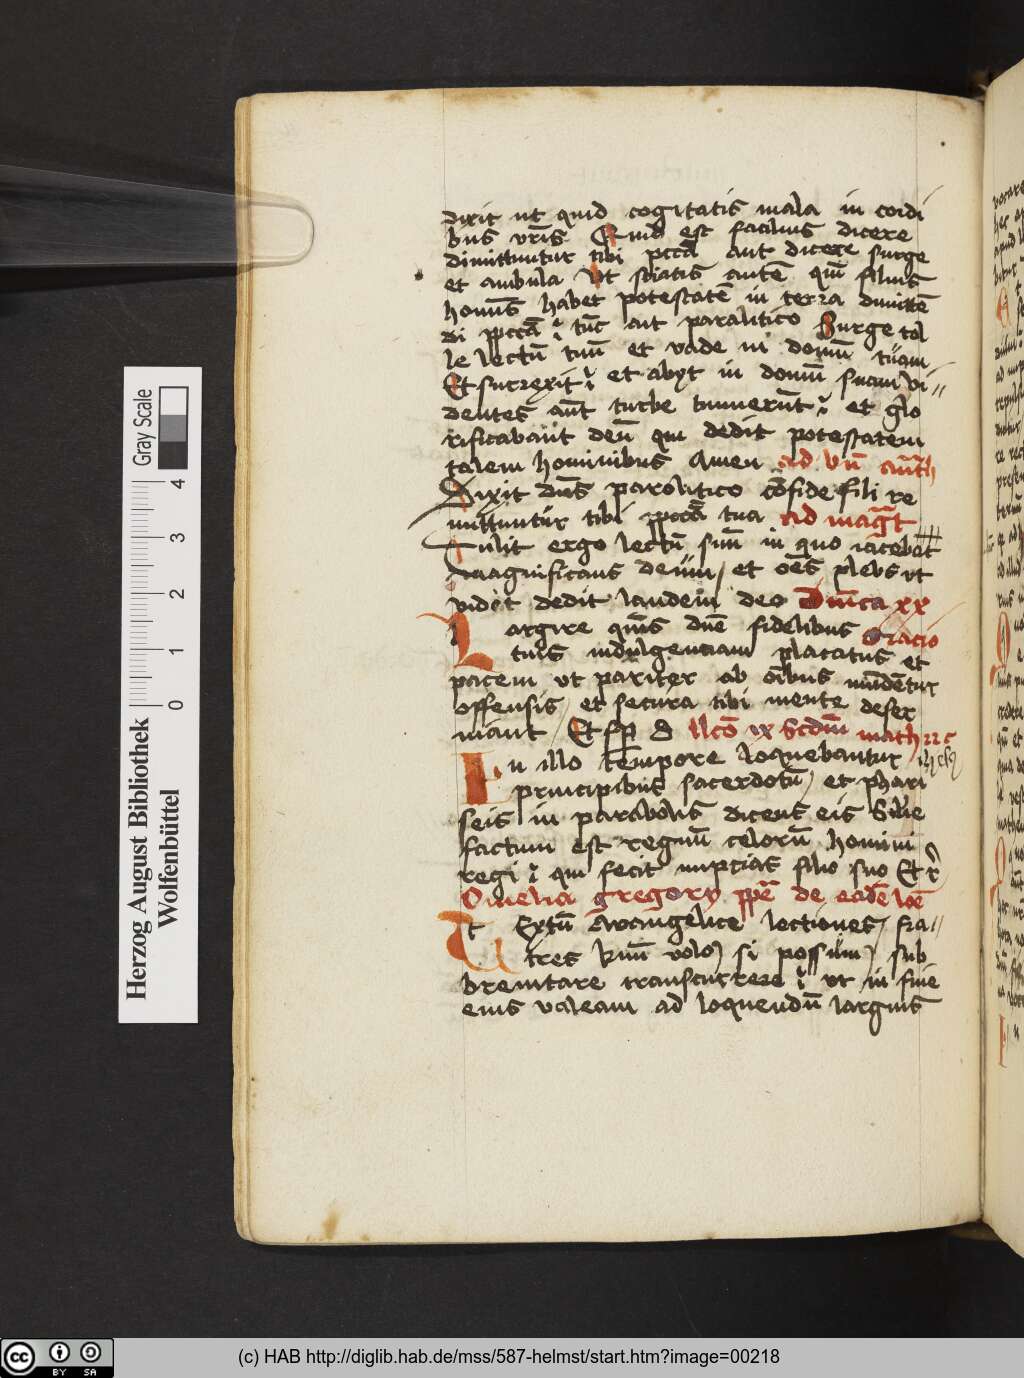 dixit ut quid cogitatis mala in cordi
bus vr̄is Quid est facilius dicere
dimittuntur tibi pccā aut dicere surge
et ambula Ut sciatis autē qm̄ filius
homīs habet potestatē in terra dimittē
di pccā tūc ait paralitico Surge tol
le lectū tuū et vade in domū tuam
Et surrexit et abyt in domū suam Vi
dentes aūt turbe timuerūt et glo
rificabāūt deū qui dedit potestatem
talem hominibus Amen ad bn̄ anth
Dixit dn̄s paralitico cōfide fili re
mittuntur tibi pccā tua ad magt
Tulit ergo lectū suū in quo iacebat
magnificans deum et oēs plebs ut
vidit dedit laudem deo Dn̄ica xx
Largire qm̄s dn̄e fidelibus Oracio
tuis indulgenciam placatus et
pacem ut pariter ab oībus mūdētur
offensis et secura tibi mente deser
uiant Et sp̄ s Lcō ix Scdm̄ math
In illo tempore loquebantur
principibus sacerdotū et phari
seis in parabolis dicens eis Sile
factum est regnū celorū homini
regi qui fecit nuptias filio suo Et r
Omelia gregory pp̄e de eadē lcōe
Textū Awangelice lectiones fra
tres kmī volo si possum sub
breuitare transcurrere ut in fine
eius valeam ad loquendū largius
Herzog August Bibliothek
Wolfenbüttel
Gray Scale
0 1 2 3 4
cc BY SA
(c) HAB http://diglib.hab.de/mss/587-helmst/start.htm?image=00218